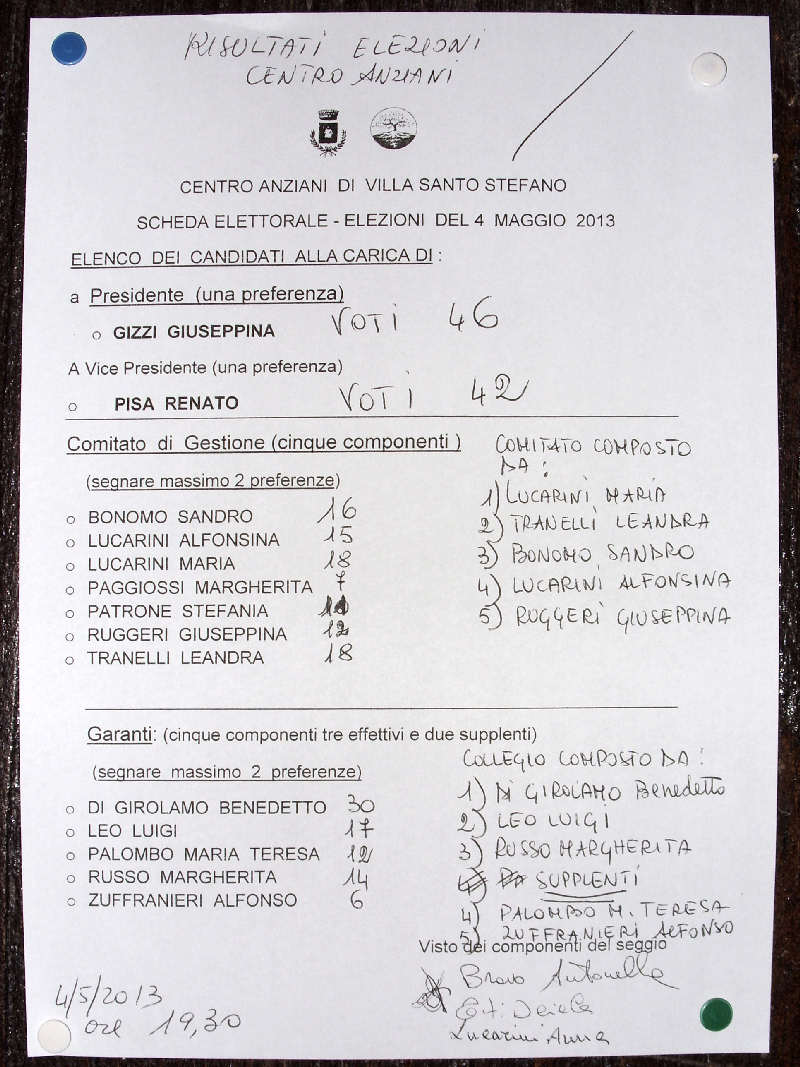 RISULTATI ELEZIONI
CENTRO ANZIANI
CENTRO ANZIANI DI VILLA SANTO STEFANO
SCHEDA ELETTORALE - ELEZIONI DEL 4 MAGGIO 2013
ELENCO DEI CANDIDATI ALLA CARICA DI :
a Presidente (una preferenza)
GIZZI GIUSEPPINA VOTI 46
A Vice Presidente (una preferenza)
PISA RENATO VOTI 42
Comitato di Gestione (cinque componenti )
(segnare massimo 2 preferenze)
BONOMO SANDRO 16
LUCARINI ALFONSINA 15
LUCARINI MARIA 18
PAGGIOSSI MARGHERITA 7
PATRONE STEFANIA
RUGGERI GIUSEPPINA 12
TRANELLI LEANDRA 18
COMITATO COMPOSTO
DA :
1) LUCARINI MARIA
2) TRANELLI LEANDRA
3) BONOMO SANDRO
4) LUCARINI ALFONSINA
5) RUGGERI GIUSEPPINA
Garanti: (cinque componenti tre effettivi e due supplenti)
(segnare massimo 2 preferenze)
DI GIROLAMO BENEDETTO 30
LEO LUIGI 17
PALOMBO MARIA TERESA 12
RUSSO MARGHERITA 14
ZUFFRANIERI ALFONSO 6
COLLEGIO COMPOSTO DA :
1) DI GIROLAMO Benedetto
2) LEO LUIGI
3) RUSSO MARGHERITA
SUPPLENTI
4) PALOMBO M. TERESA
5) ZUFFRANIERI ALFONSO
Visto dei componenti del seggio
Bravo Antonella
Lucarini Anna
4/5/2013
ore 19,30